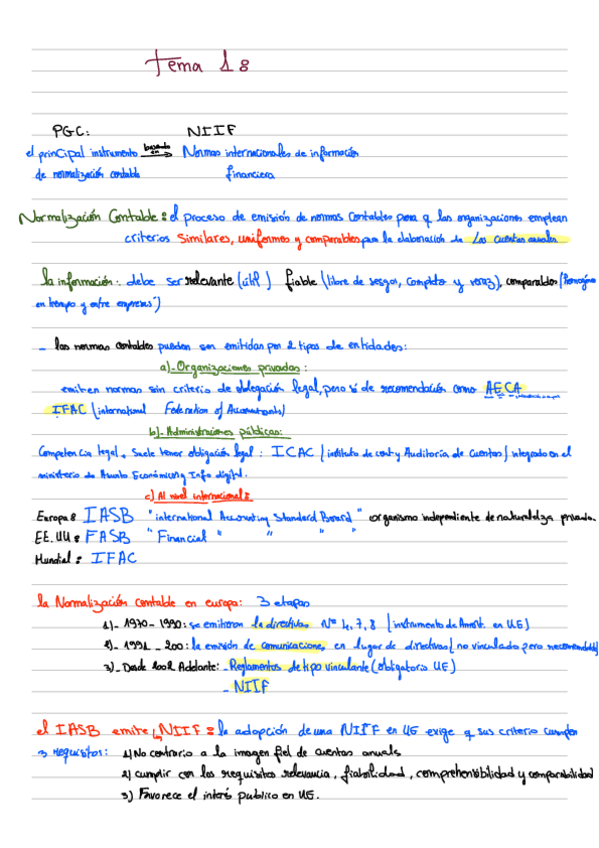 Tema 1 8
PGC: NIIF
el principal instrumento basado en Normas internacionales de información
de normalización contable financiera
Normalización Contable: el proceso de emisión de normas Contables para q las organizaciones emplean
criterios Similares, uniformes y comparables para la elaboración de Las cuentas anuales
la información: debe ser relevante (útil) fiable (libre de sesgos, Completo y veraz), comparables
en tiempo y entre empresas")
- las normas contables pueden ser emitidas por 2 tipos de entidades:
a)- Organizaciones privadas:
emiten normas sin criterio de obligación legal, pero sí de recomendación como AECA
IFAC (international Federation of Accountants)
b)- Administraciones públicas:
Competencia legal, Suele tener obligación legal: ICAC (instituto de cont y Auditoria de Cuentas) integrado en el
ministerio de Asunto Económicos y Info digital.
c) Al nivel internacional:
Europa: IASB "international Accounting Standard Board" organismo independiente de naturaleza privada.
EE.UU: FASB " Financial " " "
Mundial: IFAC
la Normalización contable en europa: 3 etapas
1)- 1970 - 1990: se emitieron la directivas Nº 4, 7, 8 (instrumento de Armt. en UE)
2)- 1991 - 200: la emisión de comunicaciones, en lugar de directivas (no vinculado pero recomendable)
3)- Desde 2002 Adelante: - Reglamentos de tipo vinculante (obligatorio UE)
- NIIF
el IASB emite NIIF: la adopción de una NIIF en UE exige q sus criterio cumplen
3 requisitos: 1) No contrario a la imagen fiel de cuentas anuals
2) cumplir con los requisitos relevancia, fiabilidad, comprehensibilidad y comparabilidad
3) Favorece el interés publico en UE.